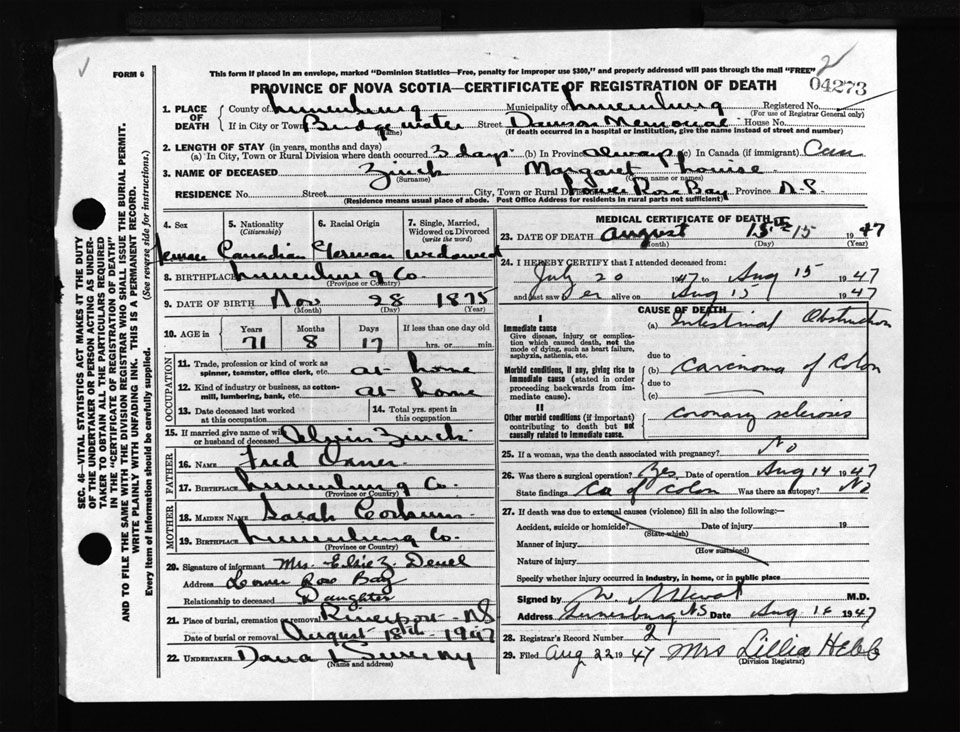 FORM 6
This form if placed in an envelope, marked "Dominion Statistics—Free, penalty for improper use $300," and properly addressed will pass through the mail "FREE"
2
PROVINCE OF NOVA SCOTIA—CERTIFICATE OF REGISTRATION OF DEATH
04273
1. PLACE OF DEATH
County of Lunenburg Municipality of Lunenburg Registered No.
(For use of Registrar General only)
If in City or Town Bridgewater Street Dawson Memorial House No.
(Name) (If death occurred in a hospital or institution, give the name instead of street and number)
2. LENGTH OF STAY (in years, months and days)
(a) In City, Town or Rural Division where death occurred 3 days (b) In Province always (c) In Canada (if immigrant)
3. NAME OF DECEASED Zinck Margaret Louise
(Surname) (Given name or names)
RESIDENCE No. Street City, Town or Rural Division Lower Rose Bay Province N.S.
(Residence means usual place of abode. Post Office Address for residents in rural parts not sufficient)
4. Sex
5. Nationality (Citizenship)
6. Racial Origin
7. Single, Married, Widowed or Divorced (write the word)
Female Canadian German Widowed
8. BIRTHPLACE Lunenburg Co.
(Province or Country)
9. DATE OF BIRTH Nov 28 1875
(Month) (Day) (Year)
10. AGE in
Years Months Days If less than one day old
71 8 17 hrs. or min.
OCCUPATION
11. Trade, profession or kind of work as spinner, teamster, office clerk, etc. at home
12. Kind of industry or business, as cotton-mill, lumbering, bank, etc. at home
13. Date deceased last worked at this occupation
14. Total yrs. spent in this occupation
15. If married give name of wife or husband of deceased Zinck
FATHER
16. NAME Fred Oxner
17. BIRTHPLACE Lunenburg Co.
(Province or Country)
MOTHER
18. MAIDEN NAME Sarah
19. BIRTHPLACE Lunenburg Co.
(Province or Country)
20. Signature of informant Mrs. Elsie Z.
Address Lower Rose Bay
Relationship to deceased Daughter
21. Place of burial, cremation or removal Riverport N.S
Date of burial or removal August 18th 1947
22. UNDERTAKER Sweeny
(Name and address)
MEDICAL CERTIFICATE OF DEATH
23. DATE OF DEATH August 15 1947
(Month) (Day) (Year)
24. I HEREBY CERTIFY that I attended deceased from:
July 20 1947 to Aug 15 1947
and last saw er alive on Aug 15 1947
CAUSE OF DEATH
I
Immediate cause
Give disease, injury or complication, which caused death, not the mode of dying, such as heart failure, asphyxia, asthenia, etc.
(a) Intestinal Obstruction
due to
Morbid conditions, if any, giving rise to immediate cause (stated in order proceeding backwards from immediate cause).
(b) Carcinoma of Colon
due to
(c)
II
Other morbid conditions (if important) contributing to death but not causally related to immediate cause.
coronary sclerosis
25. If a woman, was the death associated with pregnancy? No
26. Was there a surgical operation? Yes Date of operation Aug 14 1947
State findings Ca of Colon Was there an autopsy? No
27. If death was due to external causes (violence) fill in also the following:—
Accident, suicide or homicide? Date of injury 19
(State which)
Manner of injury
(How sustained)
Nature of injury
Specify whether injury occurred in industry, in home, or in public place
Signed by M.D.
Address Lunenburg NS Date Aug 1947
28. Registrar's Record Number 2
29. Filed Aug 22 1947 Mrs Lillia Hebb
(Division Registrar)
SEC. 46—VITAL STATISTICS ACT MAKES IT THE DUTY
OF THE UNDERTAKER OR PERSON ACTING AS UNDERTAKER TO OBTAIN ALL THE PARTICULARS REQUIRED
IN THE "CERTIFICATE OF REGISTRATION OF DEATH"
AND TO FILE THE SAME WITH THE DIVISION REGISTRAR WHO SHALL ISSUE THE BURIAL PERMIT.
WRITE PLAINLY WITH UNFADING INK. THIS IS A PERMANENT RECORD.
Every item of information should be carefully supplied. (See reverse side for instructions.)